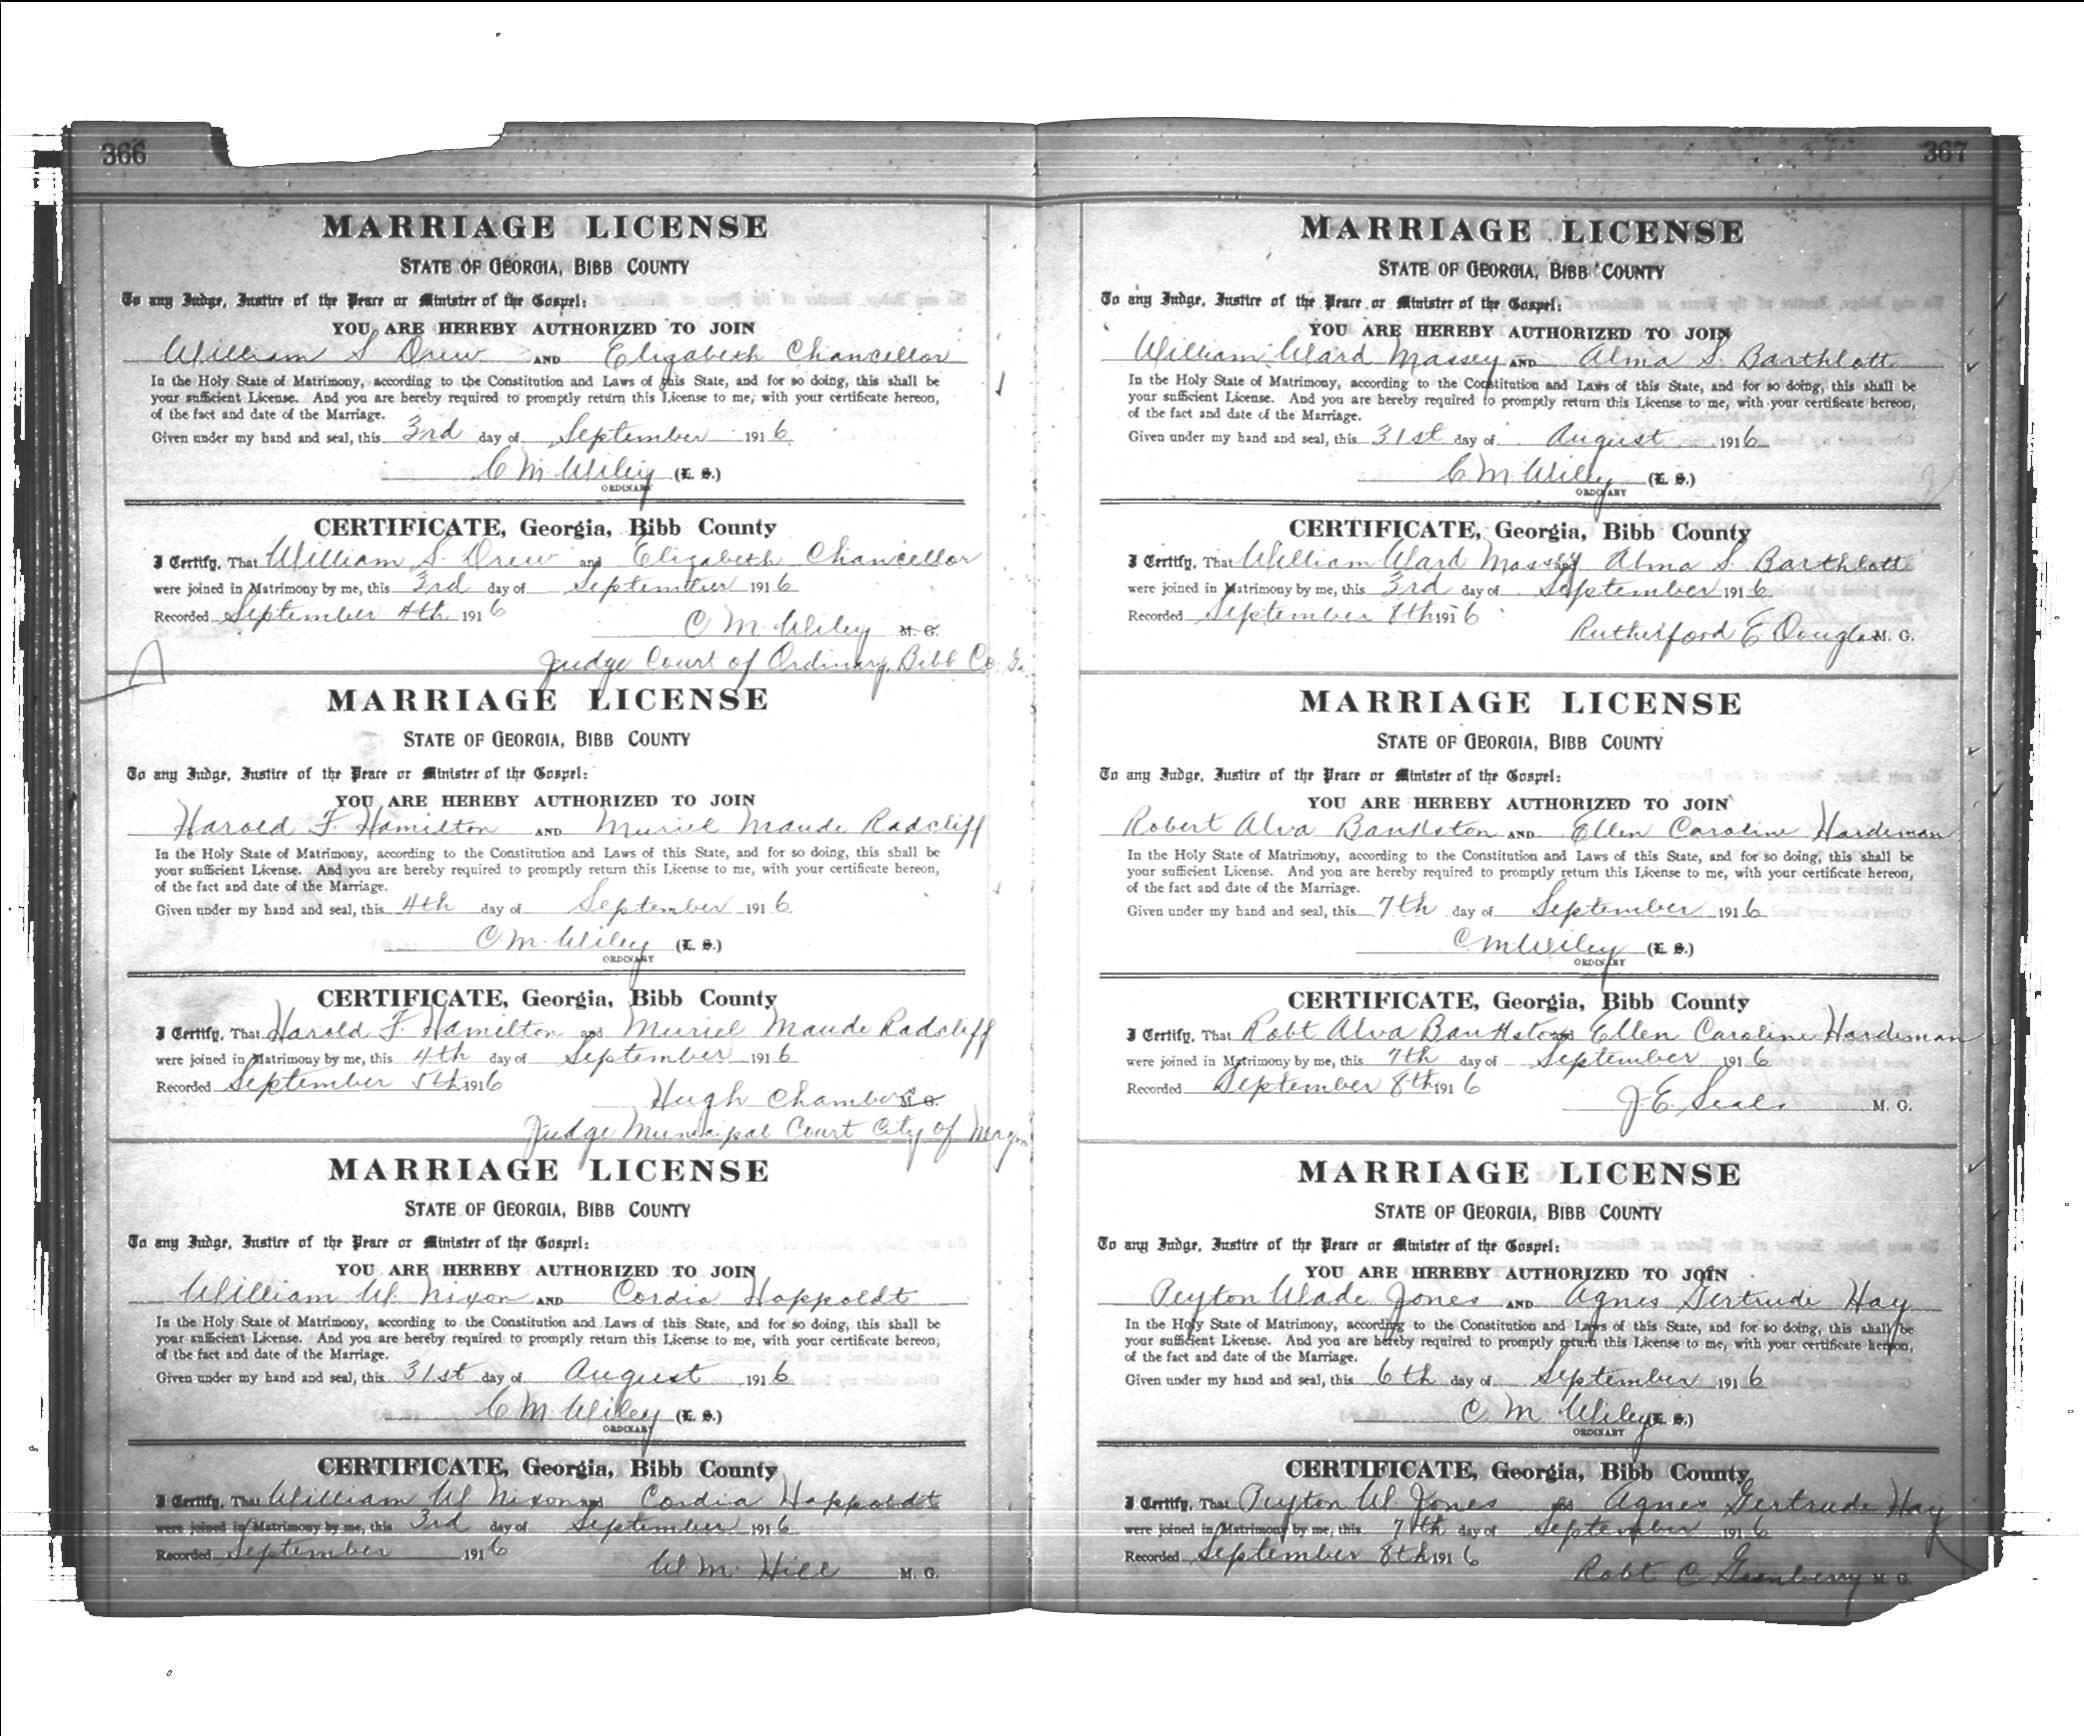 366
MARRIAGE LICENSE
STATE OF GEORGIA, BIBB COUNTY
To any Judge, Justice of the Peace or Minister of the Gospel:
YOU ARE HEREBY AUTHORIZED TO JOIN
William S Drew AND Elizabeth Chancellor
In the Holy State of Matrimony, according to the Constitution and Laws of this State, and for so doing, this shall be
your sufficient License. And you are hereby required to promptly return this License to me, with your certificate hereon,
of the fact and date of the Marriage.
Given under my hand and seal, this 3rd day of September 1916
C M Wiley (L. S.)
ORDINARY
CERTIFICATE, Georgia, Bibb County
I Certify, That William S. Drew and Elizabeth Chancellor
were joined in Matrimony by me, this 3rd day of September 1916
Recorded September 4th 1916
C M Wiley M. G.
Judge Court of Ordinary, Bibb Co. Ga.
MARRIAGE LICENSE
STATE OF GEORGIA, BIBB COUNTY
To any Judge, Justice of the Peace or Minister of the Gospel:
YOU ARE HEREBY AUTHORIZED TO JOIN
Harold F. Hamilton AND Muriel Maude Radcliff
In the Holy State of Matrimony, according to the Constitution and Laws of this State, and for so doing, this shall be
your sufficient License. And you are hereby required to promptly return this License to me, with your certificate hereon,
of the fact and date of the Marriage.
Given under my hand and seal, this 4th day of September 1916
C M. Wiley (L. S.)
ORDINARY
CERTIFICATE, Georgia, Bibb County
I Certify, That Harold F. Hamilton and Muriel Maude Radcliff
were joined in Matrimony by me, this 4th day of September 1916
Recorded September 5th 1916
Hugh Chambers M. G.
Judge Municipal Court City of Macon
MARRIAGE LICENSE
STATE OF GEORGIA, BIBB COUNTY
To any Judge, Justice of the Peace or Minister of the Gospel:
YOU ARE HEREBY AUTHORIZED TO JOIN
William W. Nixon AND Cordia Happoldt
In the Holy State of Matrimony, according to the Constitution and Laws of this State, and for so doing, this shall be
your sufficient License. And you are hereby required to promptly return this License to me, with your certificate hereon,
of the fact and date of the Marriage.
Given under my hand and seal, this 31st day of August 1916
C M Wiley (L. S.)
ORDINARY
CERTIFICATE, Georgia, Bibb County
I Certify, That William W Nixon and Cordia Happoldt
were joined in Matrimony by me, this 3rd day of September 1916
Recorded September 1916
W. M. Hill M. G.
367
MARRIAGE LICENSE
STATE OF GEORGIA, BIBB COUNTY
To any Judge, Justice of the Peace or Minister of the Gospel:
YOU ARE HEREBY AUTHORIZED TO JOIN
William Ward Massey AND Alma S. Barthlott
In the Holy State of Matrimony, according to the Constitution and Laws of this State, and for so doing, this shall be
your sufficient License. And you are hereby required to promptly return this License to me, with your certificate hereon,
of the fact and date of the Marriage.
Given under my hand and seal, this 31st day of August 1916
C M. Wiley (L. S.)
ORDINARY
CERTIFICATE, Georgia, Bibb County
I Certify, That William Ward Massey and Alma S. Barthlott
were joined in Matrimony by me, this 3rd day of September 1916
Recorded September 8th 1916
Rutherford E Douglas M. G.
MARRIAGE LICENSE
STATE OF GEORGIA, BIBB COUNTY
To any Judge, Justice of the Peace or Minister of the Gospel:
YOU ARE HEREBY AUTHORIZED TO JOIN
Robert Alva Bankston AND Ellen Caroline Hardeman
In the Holy State of Matrimony, according to the Constitution and Laws of this State, and for so doing, this shall be
your sufficient License. And you are hereby required to promptly return this License to me, with your certificate hereon,
of the fact and date of the Marriage.
Given under my hand and seal, this 7th day of September 1916
C M Wiley (L. S.)
ORDINARY
CERTIFICATE, Georgia, Bibb County
I Certify, That Robt Alva Bankston and Ellen Caroline Hardeman
were joined in Matrimony by me, this 7th day of September 1916
Recorded September 8th 1916
J. E. Seals M. G.
MARRIAGE LICENSE
STATE OF GEORGIA, BIBB COUNTY
To any Judge, Justice of the Peace or Minister of the Gospel:
YOU ARE HEREBY AUTHORIZED TO JOIN
Peyton Wade Jones AND Agnes Gertrude Hay
In the Holy State of Matrimony, according to the Constitution and Laws of this State, and for so doing, this shall be
your sufficient License. And you are hereby required to promptly return this License to me, with your certificate hereon,
of the fact and date of the Marriage.
Given under my hand and seal, this 6th day of September 1916
C. M. Wiley (L. S.)
ORDINARY
CERTIFICATE, Georgia, Bibb County
I Certify, That Peyton W. Jones and Agnes Gertrude Hay
were joined in Matrimony by me, this 7th day of September 1916
Recorded September 8th 1916
Robt C Granberry M. G.